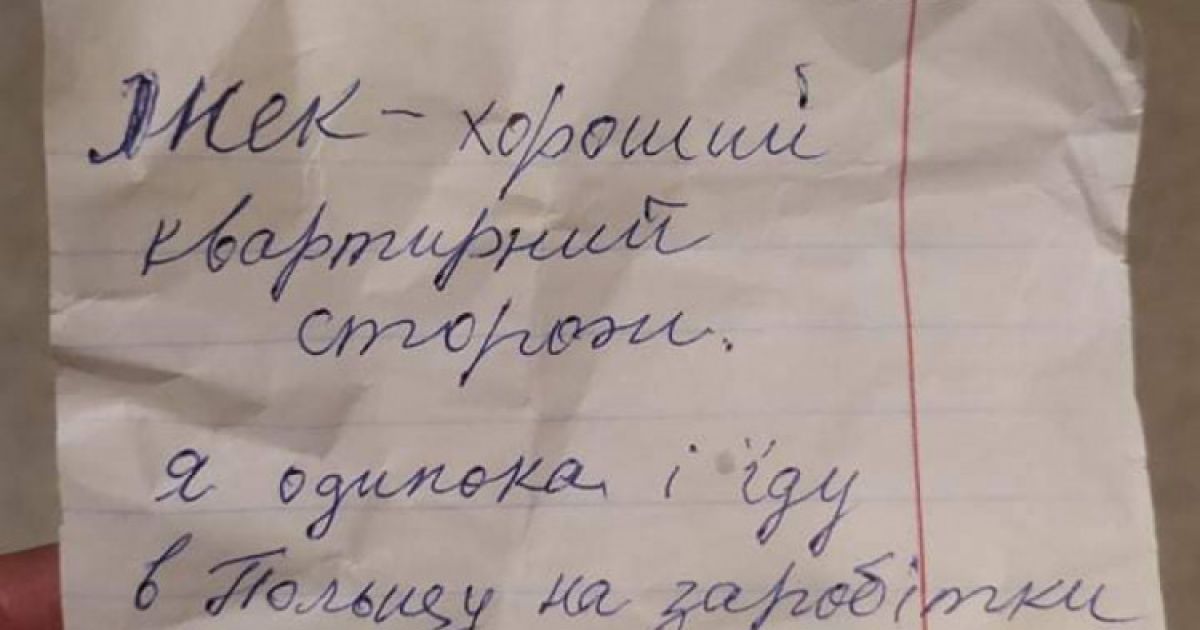 Янек – хороший
квартирний
сторож.
я одинока і їду
в Польщу на заробітки